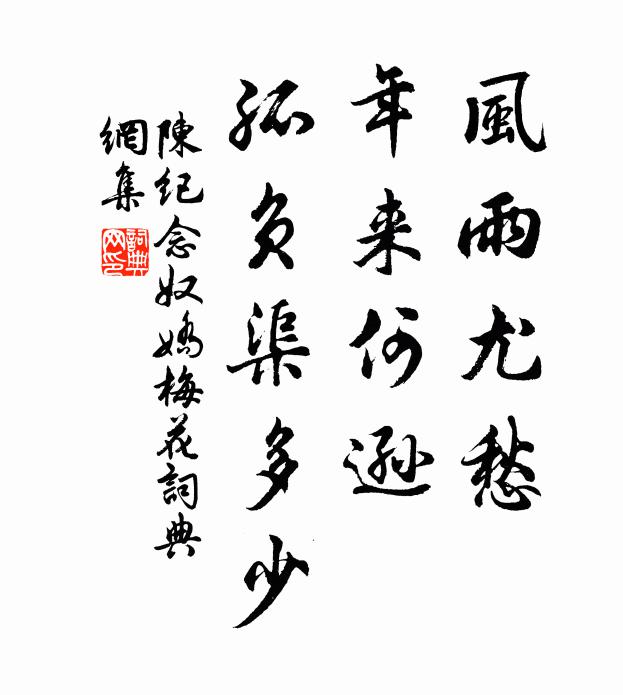 風雨尤愁
年来何遜
孤负渠多少
陳纪念奴嬌梅花詞典
網集
詞典网印